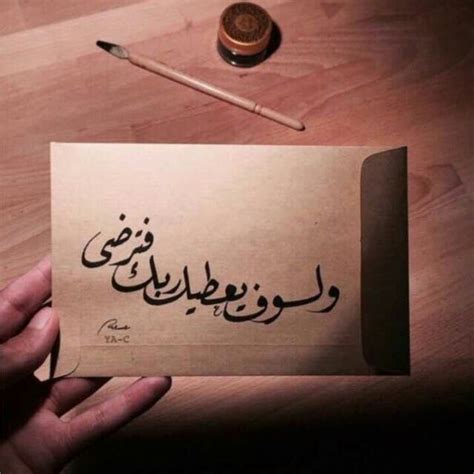 ولسوف يعطيك ربك فترضى
YA-C